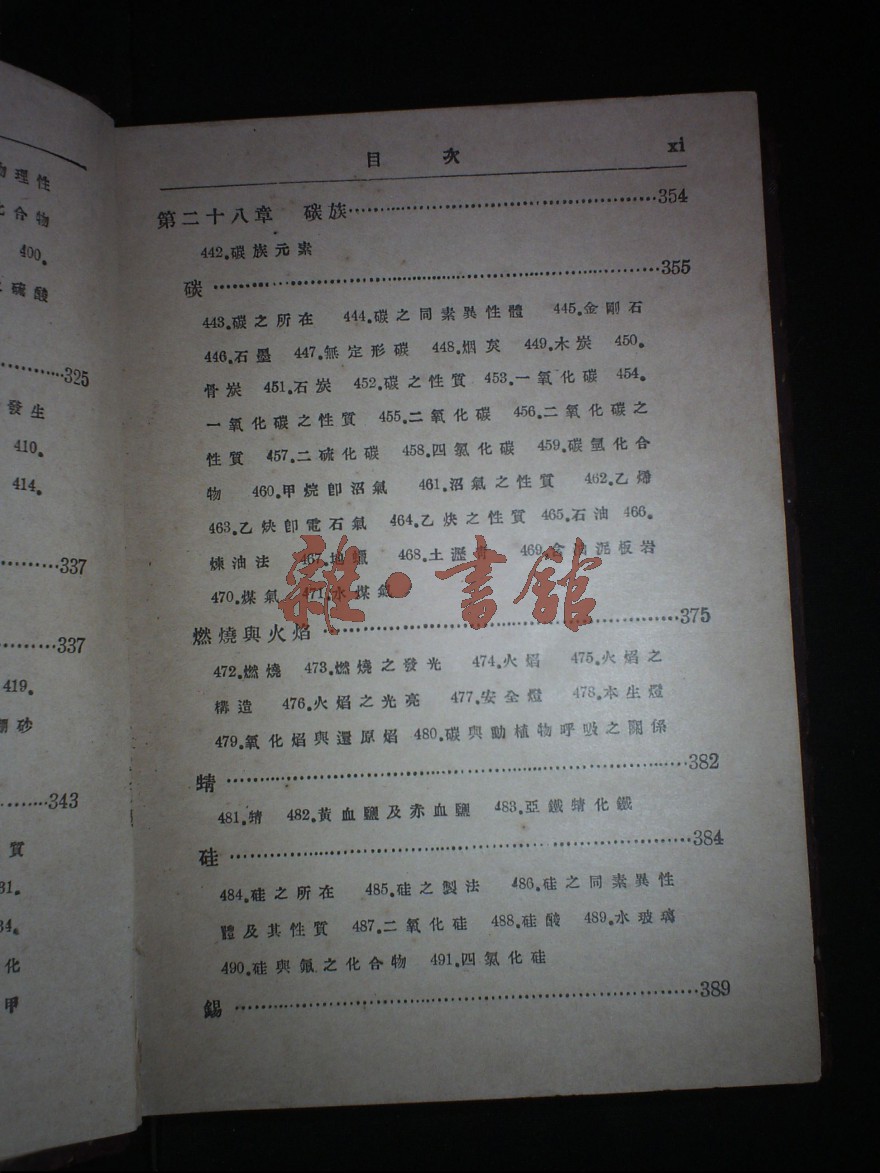 物理性
化合物
400.
硫酸
325
發生
410.
414.
337
337
419.
硼砂
343
質
31.
34.
化
甲
目 次 xi
第二十八章 碳族 354
442.碳族元素
碳 355
443.碳之所在 444.碳之同素異性體 445.金剛石
446.石墨 447.無定形碳 448.烟炱 449.木炭 450.
骨炭 451.石炭 452.碳之性質 453.一氧化碳 454.
一氧化碳之性質 455.二氧化碳 456.二氧化碳之
性質 457.二硫化碳 458.四氯化碳 459.碳氫化合
物 460.甲烷卽沼氣 461.沼氣之性質 462.乙烯
463.乙炔卽電石氣 464.乙炔之性質 465.石油 466.
煉油法 467.地蠟 468.土瀝青 469.含油泥板岩
470.煤氣 471.水煤氣
燃燒與火焰 375
472.燃燒 473.燃燒之發光 474.火焰 475.火焰之
構造 476.火焰之光亮 477.安全燈 478.本生燈
479.氧化焰與還原焰 480.碳與動植物呼吸之關係
蜻 382
481.蜻 482.黃血鹽及赤血鹽 483.亞鐵蜻化鐵
硅 384
484.硅之所在 485.硅之製法 486.硅之同素異性
體及其性質 487.二氧化硅 488.硅酸 489.水玻璃
490.硅與氟之化合物 491.四氯化硅
錫 389
雜·書舘